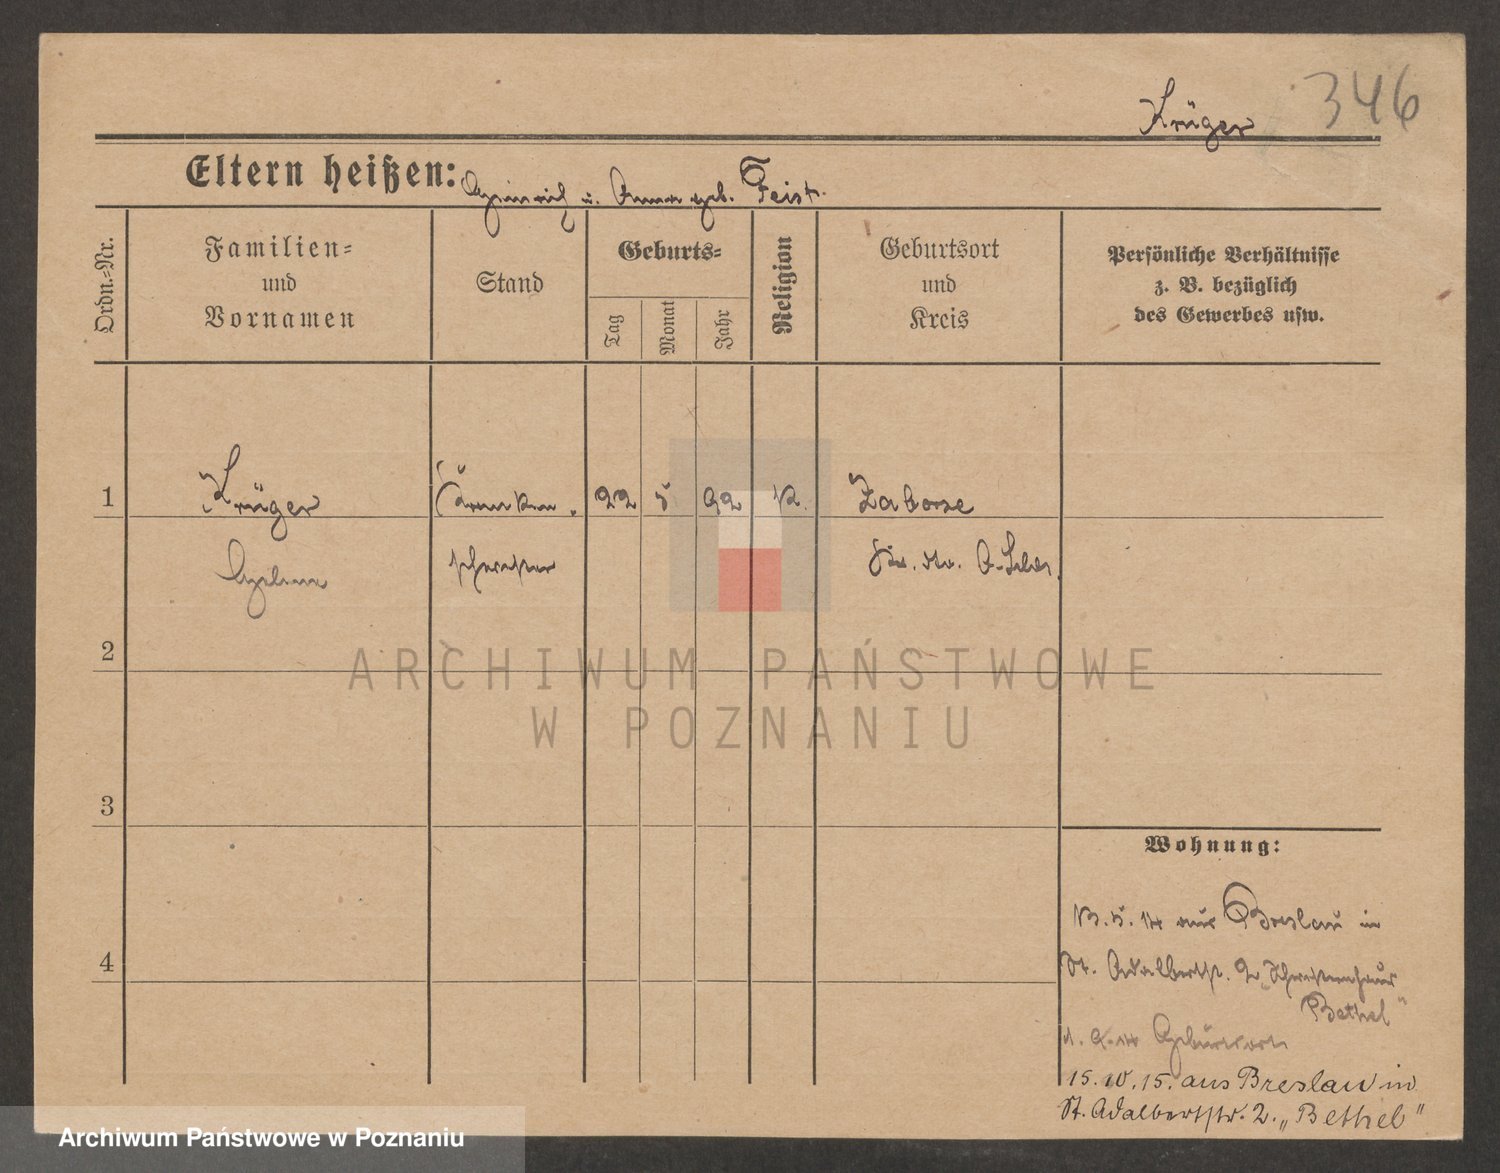 346
Krüger
Eltern heißen: Heinrich u. Anna geb. Feist.
Ordn.-Nr.
Familien-
und
Vornamen
Stand
Geburts-
Tag
Monat
Jahr
Religion
Geburtsort
und
Kreis
Persönliche Verhältnisse
z. B. bezüglich
des Gewerbes usw.
1
Krüger
Kranken-
22 5 92 K. Zaborze
schwester
2
ARCHIWUM PAŃSTWOWE
W POZNANIU
3
Wohnung:
13. 5. 14 aus Breslau in
St. Adalbertstr. 2 „Schwesternhaus
Bethel"
4
Geburtsort
15. 10. 15. aus Breslau in
St. Adalbertstr. 2. „Bethel"
Archiwum Państwowe w Poznaniu